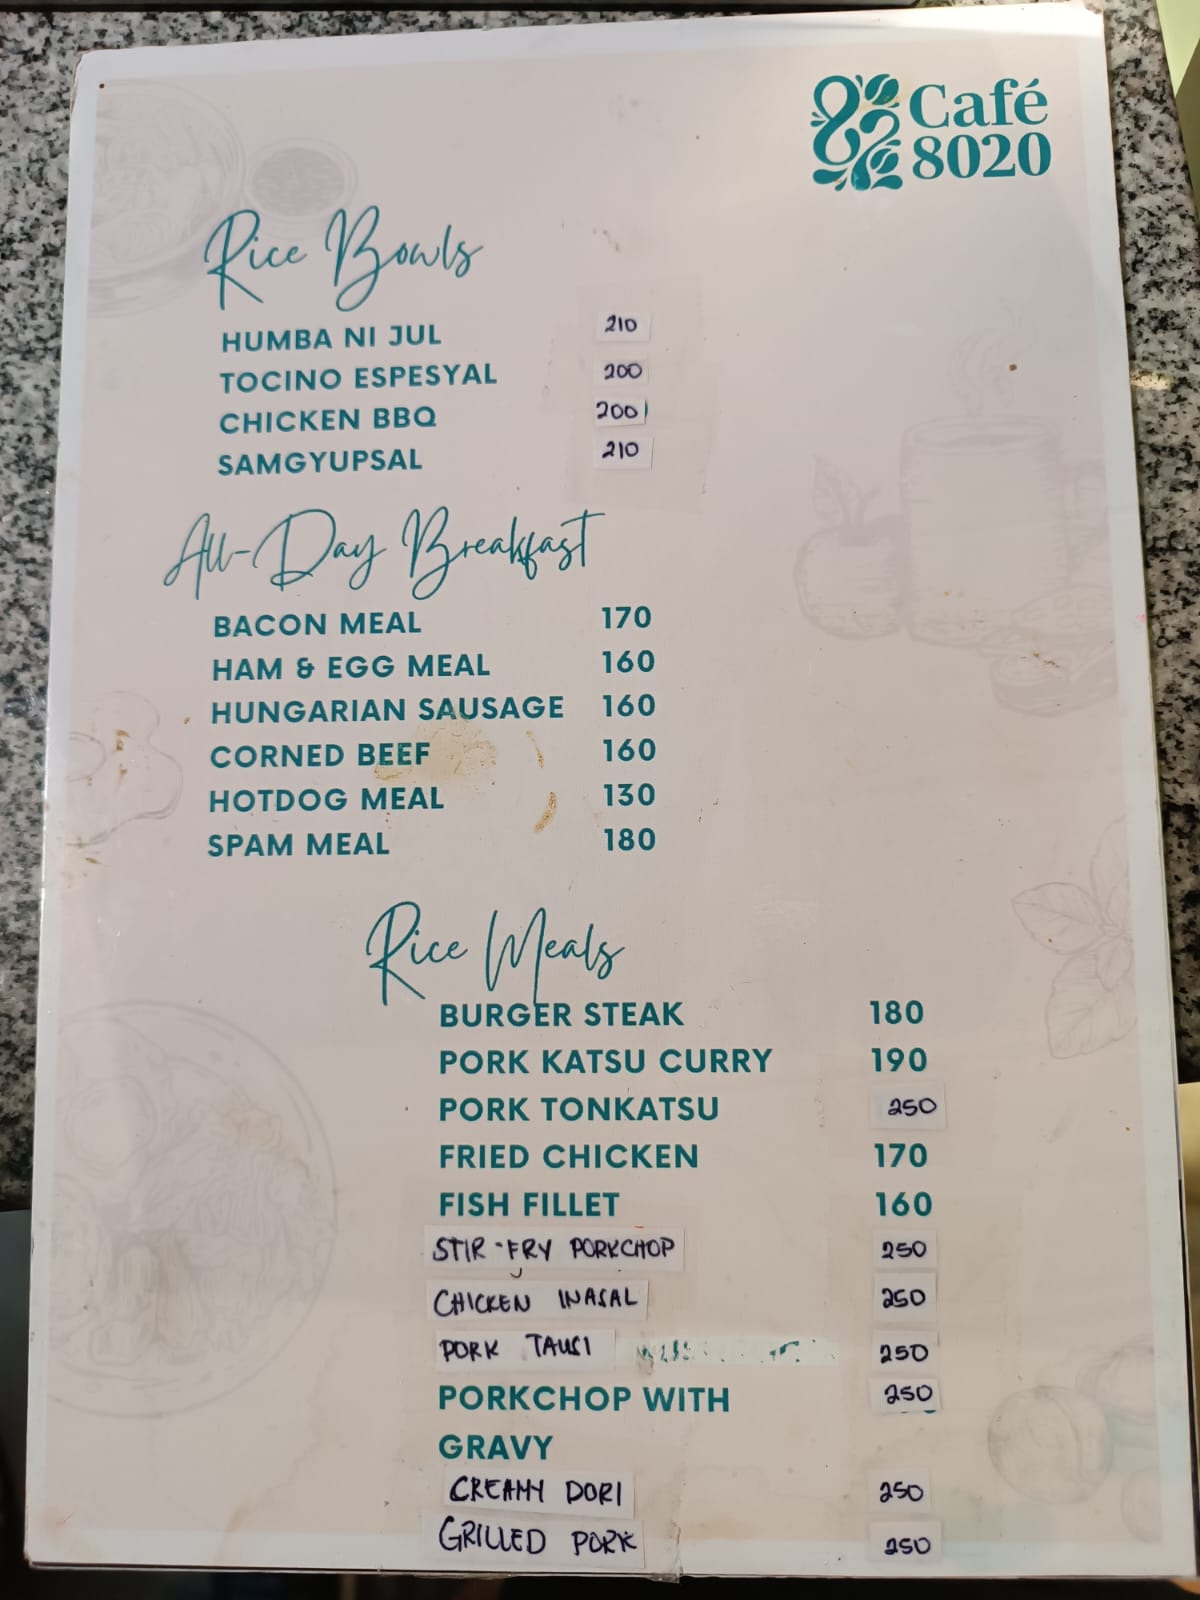 Café
8020
Rice Bowls
HUMBA NI JUL 210
TOCINO ESPESYAL 200
CHICKEN BBQ 200
SAMGYUPSAL 210
All-Day Breakfast
BACON MEAL 170
HAM & EGG MEAL 160
HUNGARIAN SAUSAGE 160
CORNED BEEF 160
HOTDOG MEAL 130
SPAM MEAL 180
Rice Meals
BURGER STEAK 180
PORK KATSU CURRY 190
PORK TONKATSU 250
FRIED CHICKEN 170
FISH FILLET 160
STIR-FRY PORKCHOP 250
CHICKEN INASAL 250
PORK TAUSI 250
PORKCHOP WITH 250
GRAVY
CREAMY DORI 250
GRILLED PORK 250